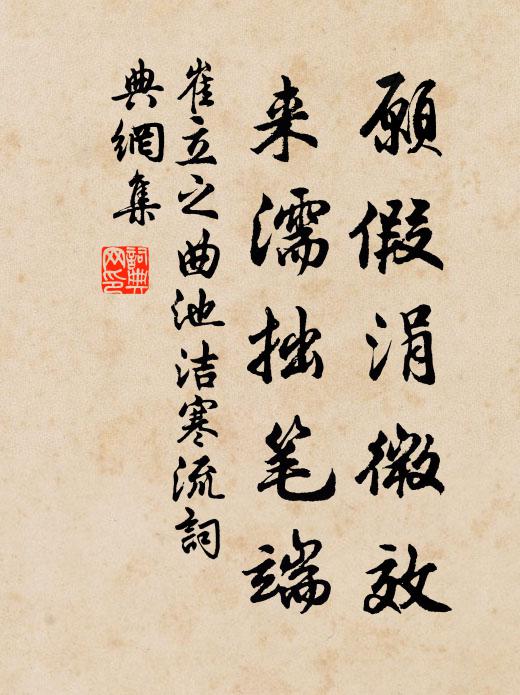 願假涓微效
来濡拙笔端
崔立之曲池洁寒流詞
典網集
詞典
网印